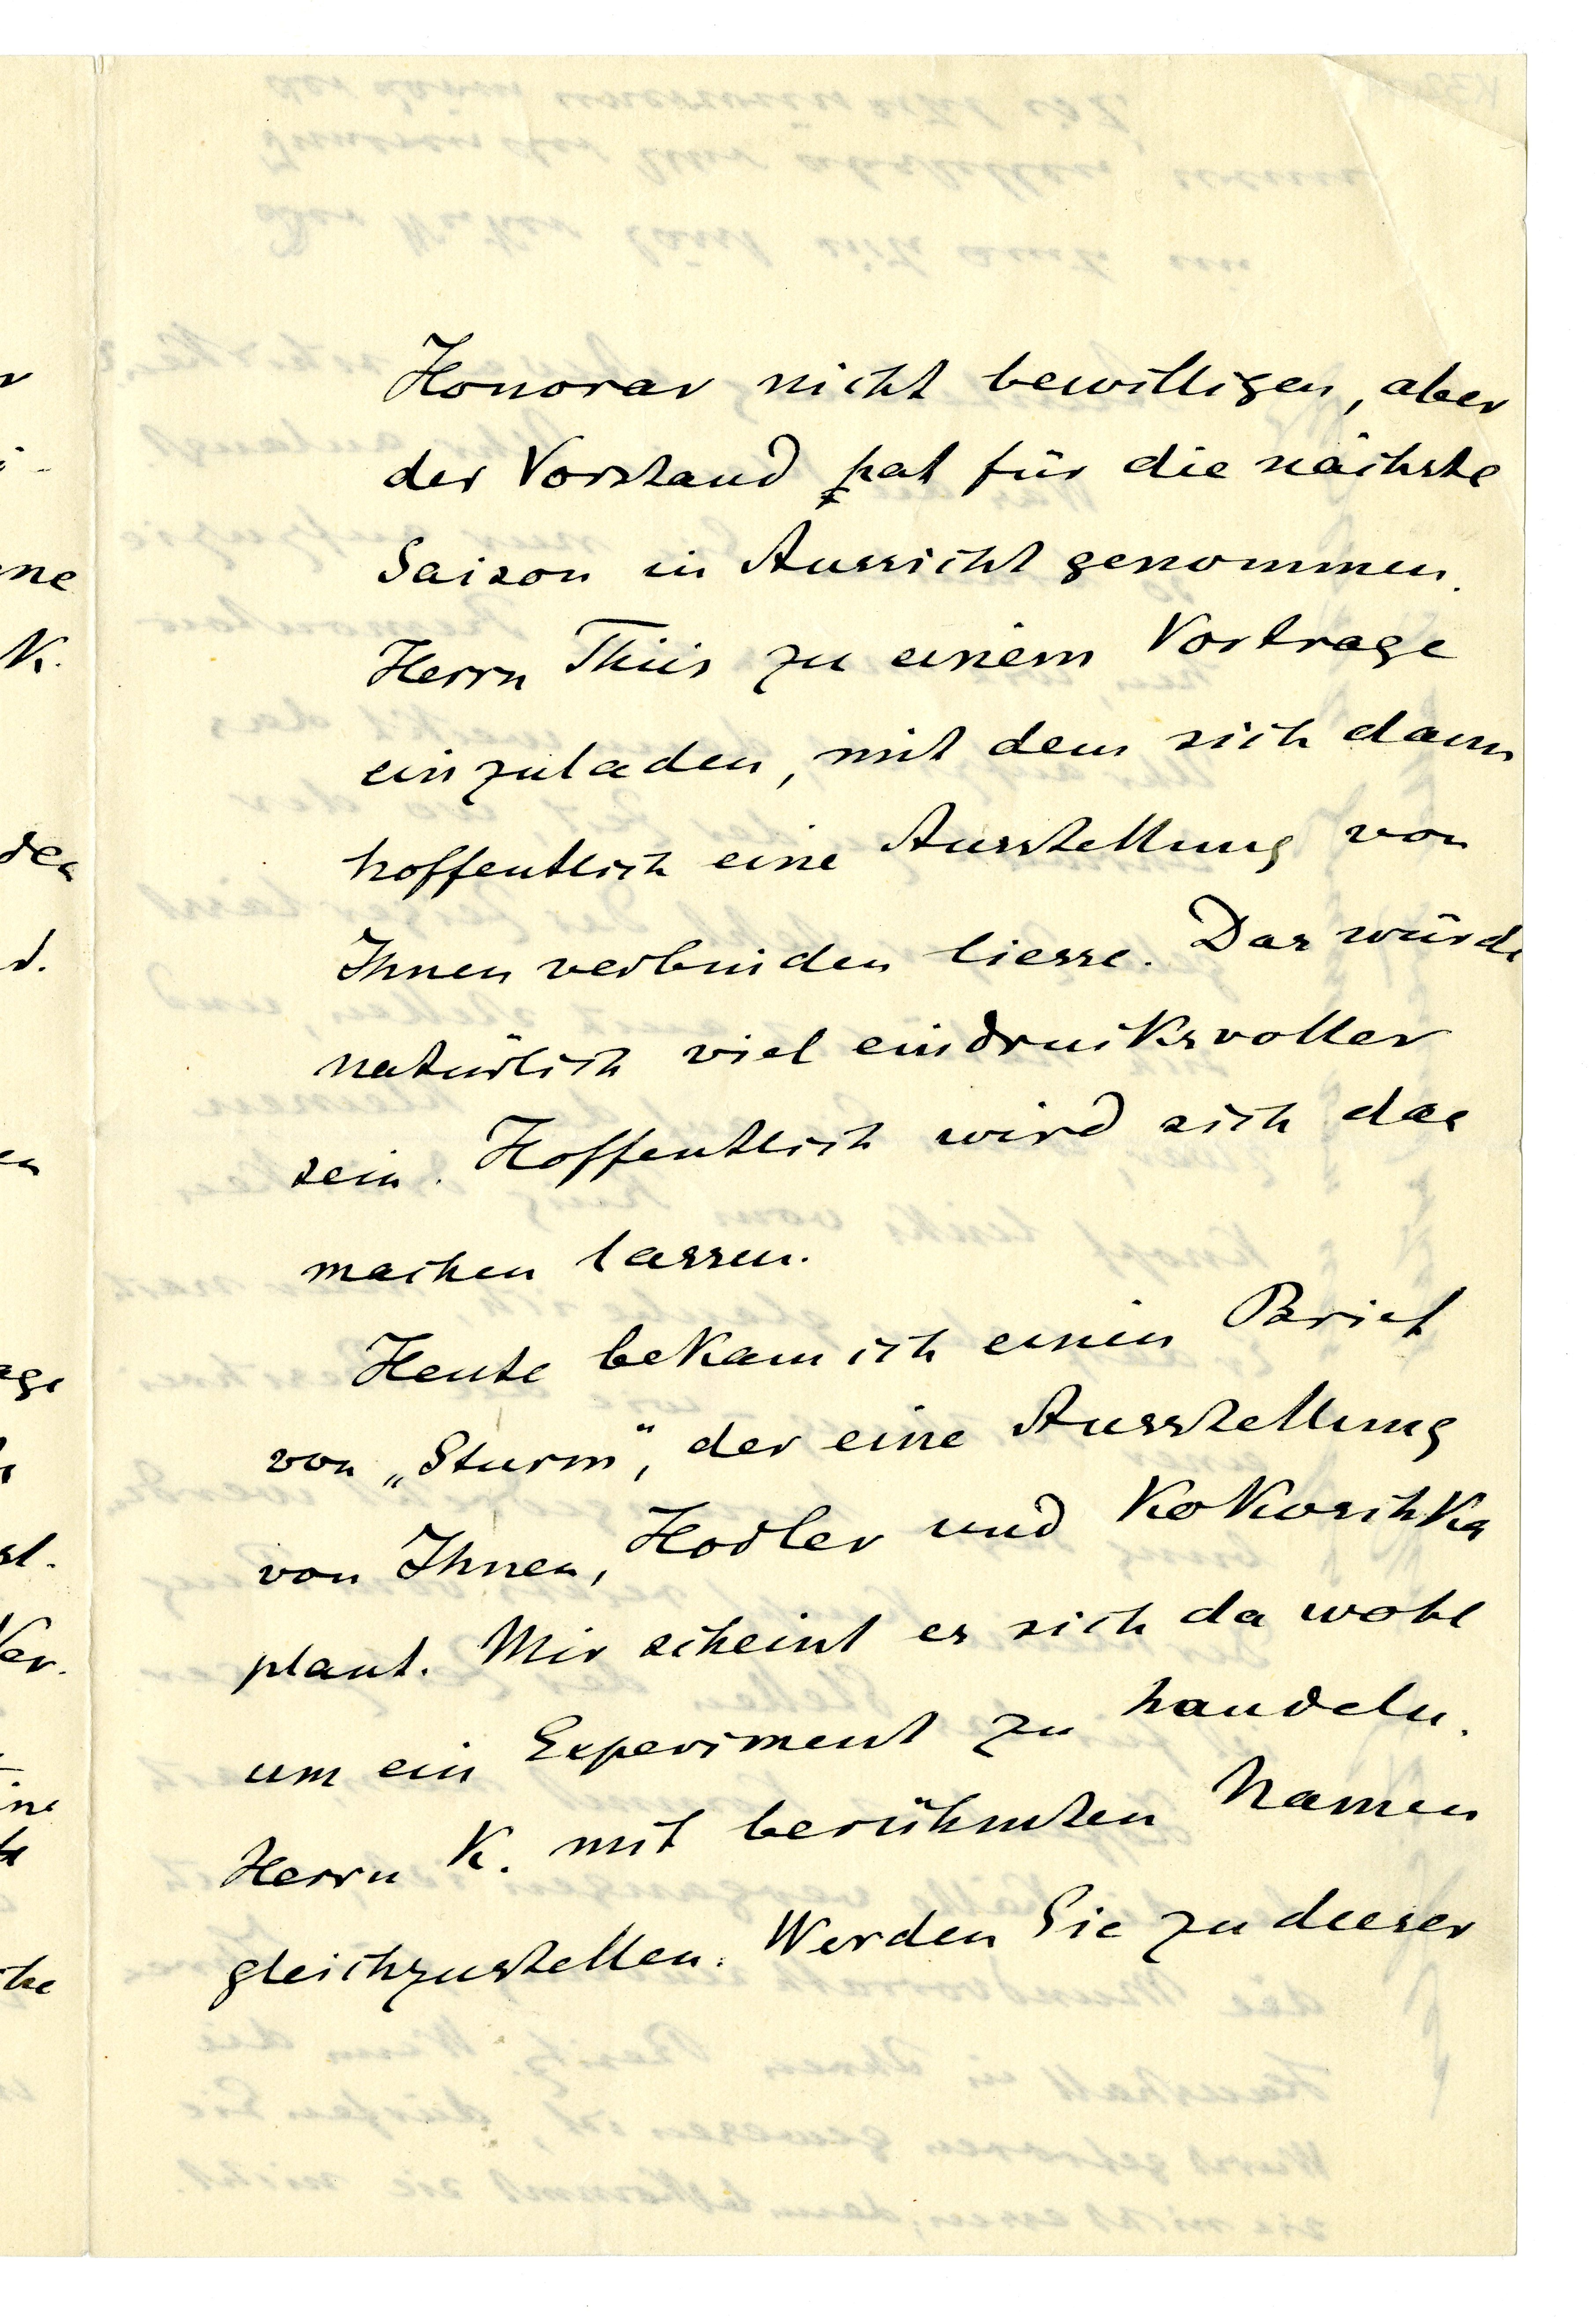 Honorar nicht bewilligen, aber
der Vorstand hat für die nächste
Saison in Aussicht genommen.
Herrn Thiis zu einem Vortrage
einzuladen, mit dem sich dann
hoffentlich eine Ausstellung von
Ihnen verbinden liesse. Das würde
natürlich viel eindrucksvoller
sein. Hoffentlich wird sich das
machen lassen.
Heute bekam ich einen Brief
von „Sturm“, der eine Ausstellung
von Ihnen, Hodler und Kokoschka
plant. Mir scheint es sich da wohl
um ein Experiment zu handeln.
Herrn K. mit berühmten Namen
gleichzustellen. Werden Sie zu dieser